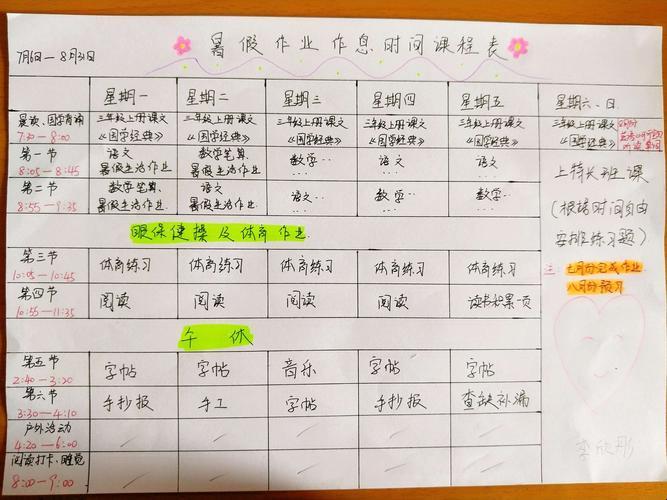 暑假作业作息时间课程表
7月6日—8月31日
星期一 星期二 星期三 星期四 星期五 星期六、日
晨读、国学背诵 三年级上册课文 三年级上册课文 三年级上册课文 三年级上册课文 三年级上册课文 三年级上册课文
7:30-8:00 《国学经典》 《国学经典》 《国学经典》 《国学经典》 《国学经典》 《国学经典》
第一节 语文 数学笔算、 数学·· 语文 数学··
8:05-8:45 暑假生活作业 暑假生活作业 ··· ··· ···
第二节 数学笔算、 语文 语文·· 数学·· 数学··
8:55-9:35 暑假生活作业 暑假生活作业
上特长班课
(根据时间自由
安排练习题)
眼保健操及体育作业
第三节 体育练习 体育练习 体育练习 体育练习 体育练习
10:05-10:45
注: 七月份完成作业
八月份预习
第四节 阅读 阅读 阅读 阅读 读书积累一页
10:55-11:35
午休
第五节 字帖 字帖 音乐 字帖 字帖
2:40-3:20
第六节 手抄报 手工 字帖 手抄报 查缺补漏
3:30-4:10
户外活动
4:20-6:00
阅读打卡、睡觉
8:00-9:00
李欣彤